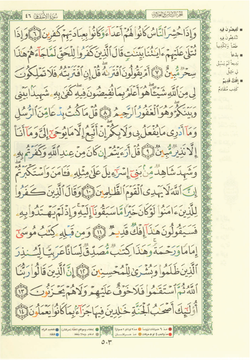 وَإِذَا حُشِرَ ٱلنَّاسُ كَانُوا۟ لَهُمْ أَعْدَآءً وَكَانُوا۟ بِعِبَادَتِهِمْ كَـٰفِرِينَ ٦ وَإِذَا
تُتْلَىٰ عَلَيْهِمْ ءَايَـٰتُنَا بَيِّنَـٰتٍ قَالَ ٱلَّذِينَ كَفَرُوا۟ لِلْحَقِّ لَمَّا جَآءَهُمْ هَـٰذَا
سِحْرٌ مُّبِينٌ ٧ أَمْ يَقُولُونَ ٱفْتَرَىٰهُ قُلْ إِنِ ٱفْتَرَيْتُهُۥ فَلَا تَمْلِكُونَ
لِى مِنَ ٱللَّهِ شَيْـًٔا هُوَ أَعْلَمُ بِمَا تُفِيضُونَ فِيهِ كَفَىٰ بِهِۦ شَهِيدًۢا بَيْنِى
وَبَيْنَكُمْ وَهُوَ ٱلْغَفُورُ ٱلرَّحِيمُ ٨ قُلْ مَا كُنتُ بِدْعًا مِّنَ ٱلرُّسُلِ
وَمَآ أَدْرِى مَا يُفْعَلُ بِى وَلَا بِكُمْ إِنْ أَتَّبِعُ إِلَّا مَا يُوحَىٰٓ إِلَىَّ وَمَآ أَنَا۠
إِلَّا نَذِيرٌ مُّبِينٌ ٩ قُلْ أَرَءَيْتُمْ إِن كَانَ مِنْ عِندِ ٱللَّهِ وَكَفَرْتُم بِهِۦ
وَشَهِدَ شَاهِدٌ مِّنۢ بَنِىٓ إِسْرَٰٓءِيلَ عَلَىٰ مِثْلِهِۦ فَـَٔامَنَ وَٱسْتَكْبَرْتُمْ
إِنَّ ٱللَّهَ لَا يَهْدِى ٱلْقَوْمَ ٱلظَّـٰلِمِينَ ١٠ وَقَالَ ٱلَّذِينَ كَفَرُوا۟
لِلَّذِينَ ءَامَنُوا۟ لَوْ كَانَ خَيْرًا مَّا سَبَقُونَآ إِلَيْهِ وَإِذْ لَمْ يَهْتَدُوا۟ بِهِۦ
فَسَيَقُولُونَ هَـٰذَآ إِفْكٌ قَدِيمٌ ١١ وَمِن قَبْلِهِۦ كِتَـٰبُ مُوسَىٰٓ
إِمَامًا وَرَحْمَةً وَهَـٰذَا كِتَـٰبٌ مُّصَدِّقٌ لِّسَانًا عَرَبِيًّا لِّيُنذِرَ
ٱلَّذِينَ ظَلَمُوا۟ وَبُشْرَىٰ لِلْمُحْسِنِينَ ١٢ إِنَّ ٱلَّذِينَ قَالُوا۟ رَبُّنَا
ٱللَّهُ ثُمَّ ٱسْتَقَـٰمُوا۟ فَلَا خَوْفٌ عَلَيْهِمْ وَلَا هُمْ يَحْزَنُونَ ١٣
أُو۟لَـٰٓئِكَ أَصْحَـٰبُ ٱلْجَنَّةِ خَـٰلِدِينَ فِيهَا جَزَآءًۢ بِمَا كَانُوا۟ يَعْمَلُونَ ١٤
٥٠٣